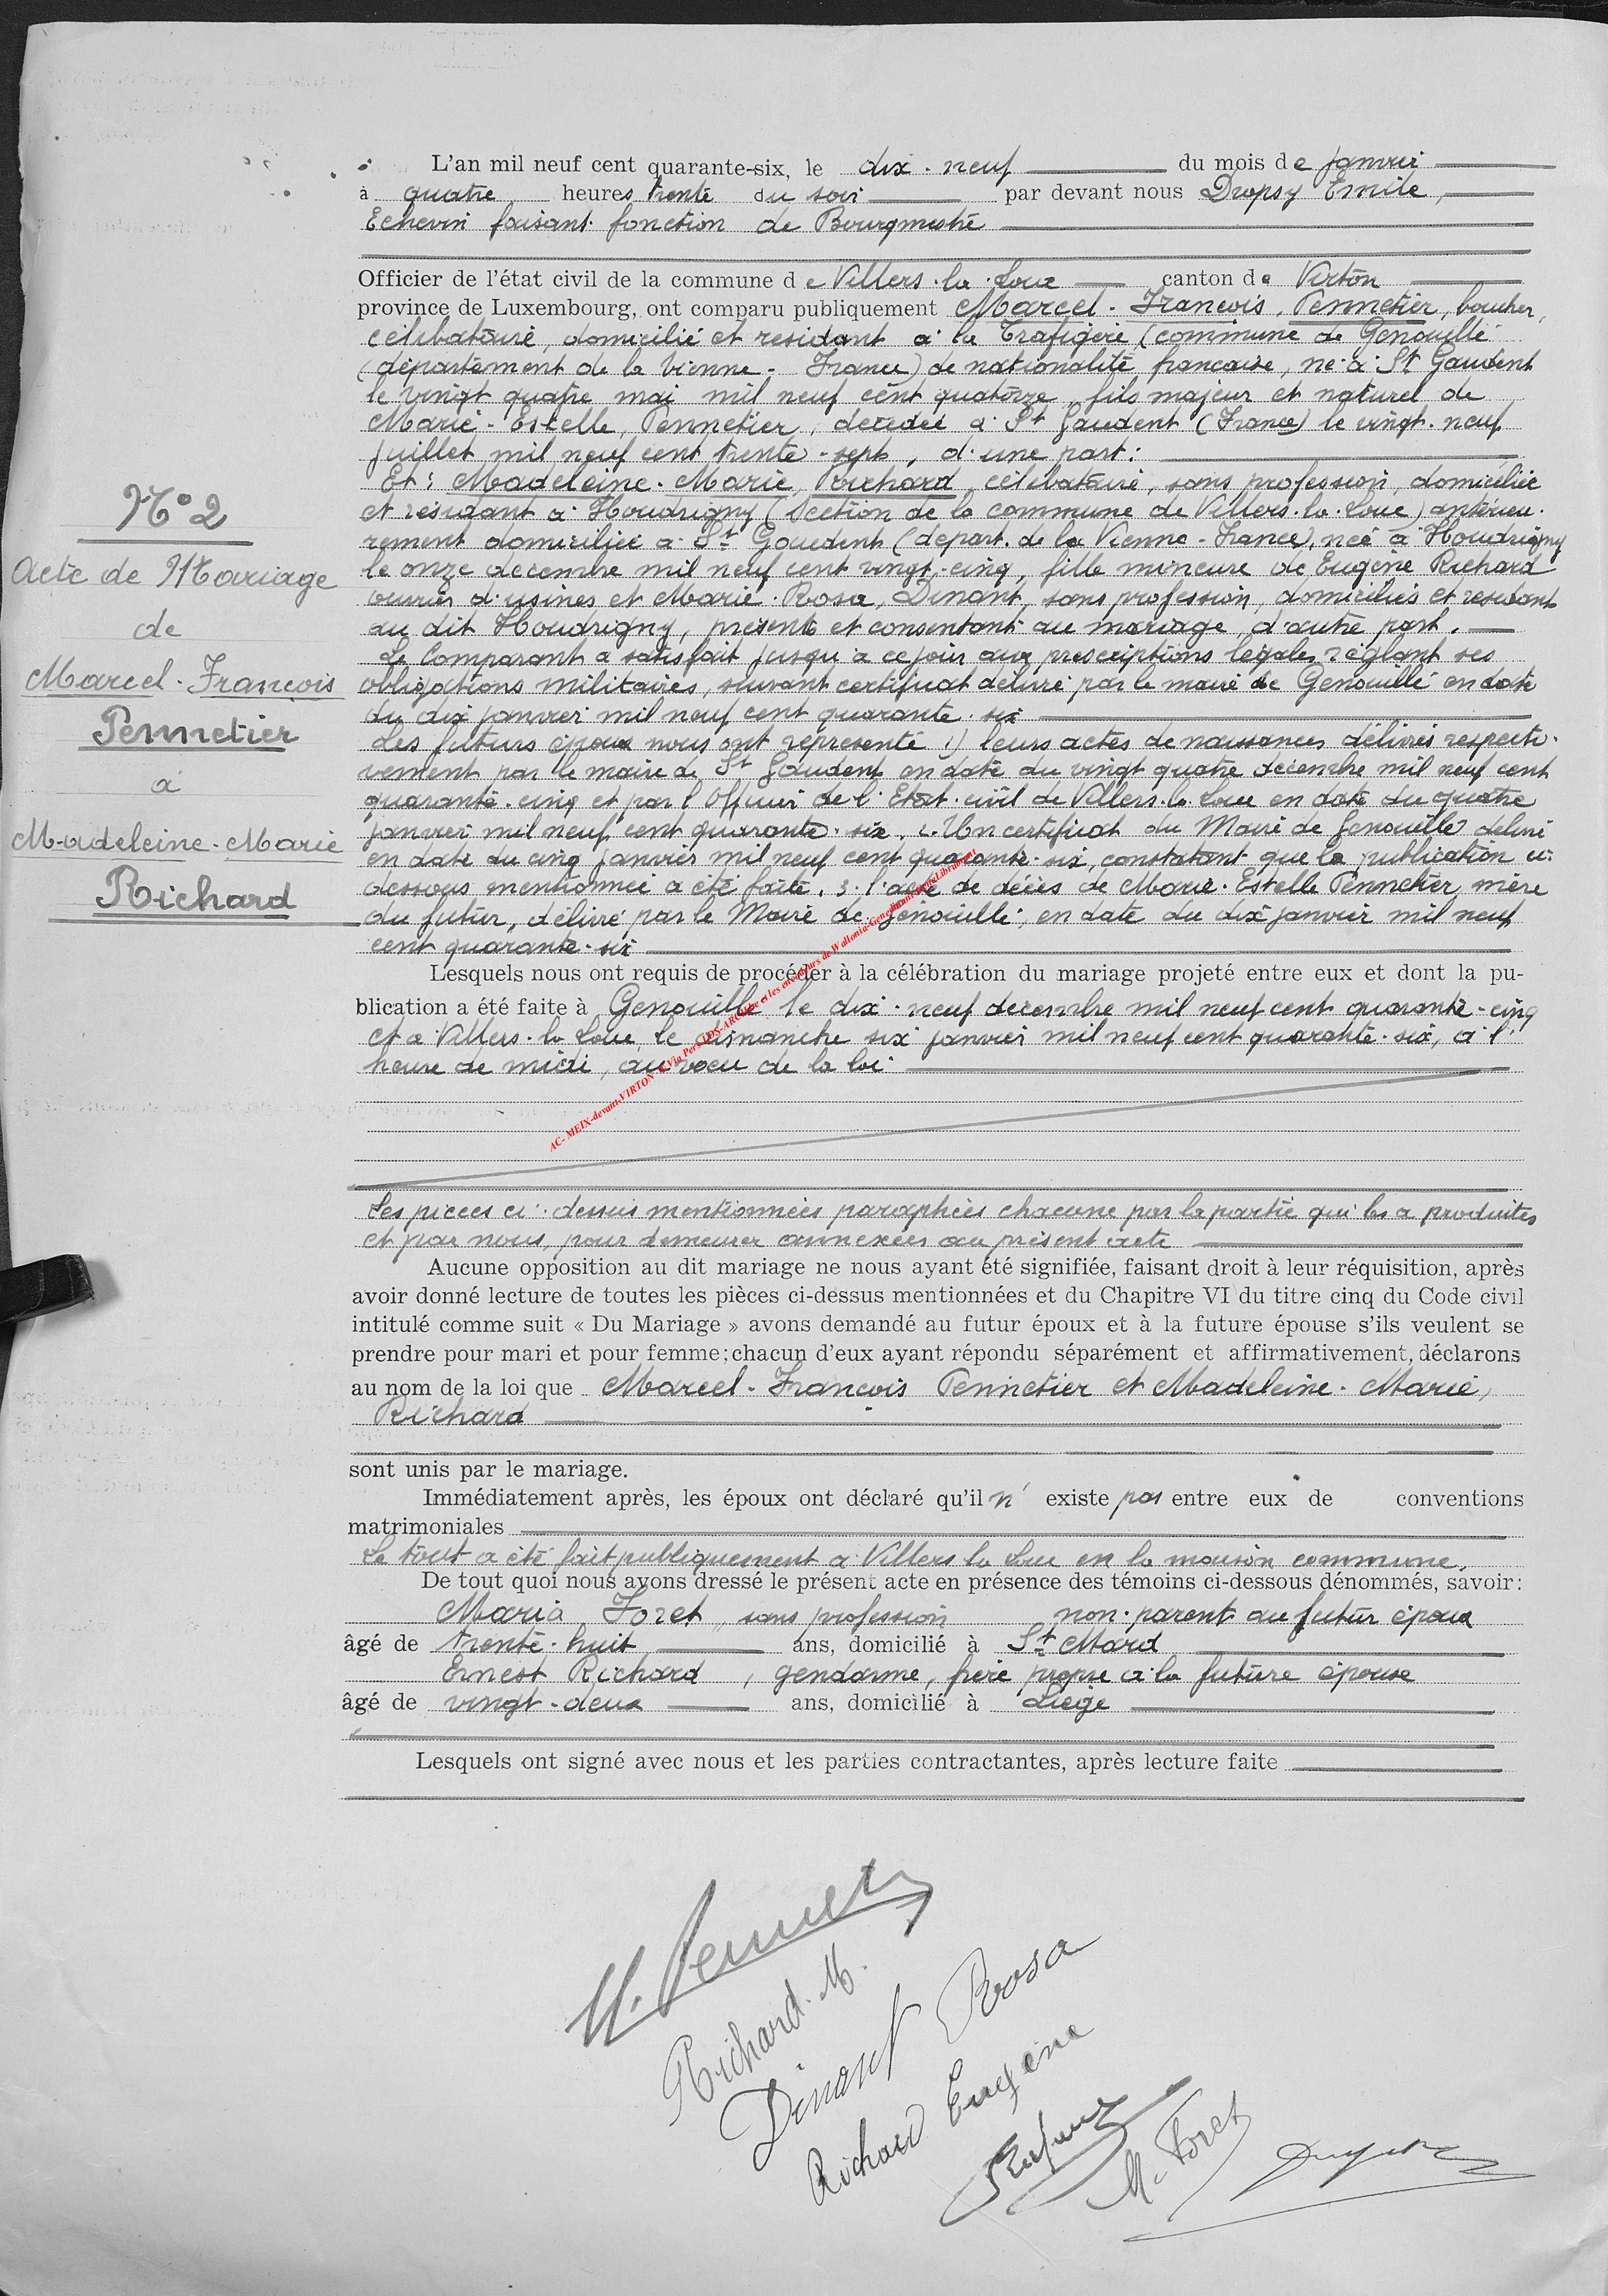 L'an mil neuf cent quarante-six, le dix-neuf du mois de janvier
à quatre heures trente du soir par devant nous Dropsy Emile,
Echevin faisant fonction de Bourgmestre
Officier de l'état civil de la commune de Villers-la-Loue canton de Virton
province de Luxembourg, ont comparu publiquement Marcel-François, Pennetier, boucher,
célibataire, domicilié et résidant à la (commune de Genouillé
(département de la Vienne - France) de nationalité française, né à St Gaudent
le vingt quatre mai mil neuf cent quatorze, fils majeur et naturel de
Marie-Estelle, Pennetier, décédée à St Gaudent (France) le vingt-neuf
juillet mil neuf cent trente-sept, d'une part:
Et: Madeleine-Marie, Richard, célibataire, sans profession, domiciliée
et résidant à Houdrigny (section de la commune de Villers-la-Loue) antérieu-
rement domiciliée à St Gaudent (départ. de la Vienne - France), née à Houdrigny
le onze décembre mil neuf cent vingt-cinq, fille mineure de Eugène Richard
ouvrier d'usines et Marie-Rosa, Dinant, sans profession, domiciliés et résidant
au dit Houdrigny, présents et consentant au mariage, d'autre part.
Le Comparant a satisfait jusqu'à ce jour aux prescriptions légales réglant ses
obligations militaires, suivant certificat délivré par le maire de Genouillé en date
du dix janvier mil neuf cent quarante-six
Les futurs époux nous ont représenté 1) leurs actes de naissances délivrés respecti-
vement par le maire de St Gaudent en date du vingt quatre décembre mil neuf cent
quarante-cinq et par l'Officier de l'Etat-civil de Villers-la-Loue en date du quatre
janvier mil neuf cent quarante-six, 2. Un certificat du Maire de Genouillé délivré
en date du cinq janvier mil neuf cent quarante-six, constatant que la publication ci-
dessous mentionnée a été faite. 3. l'acte de décès de Marie-Estelle Pennetier, mère
du futur, délivré par le Maire de Genouillé, en date du dix janvier mil neuf
cent quarante-six
N° 2
Acte de Mariage
de
Marcel-François
Pennetier
à
Madeleine-Marie
Richard
Lesquels nous ont requis de procéder à la célébration du mariage projeté entre eux et dont la pu-
blication a été faite à Genouillé le dix-neuf décembre mil neuf cent quarante-cinq
et à Villers-la-Loue, le dimanche six janvier mil neuf cent quarante-six, à l'
heure de midi, au voeu de la loi
AC- MEIX-devant-VIRTON
Les pièces ci-dessus mentionnées paraphées chacune par la partie qui les a produites
et par nous, pour demeurer annexées au présent acte
Aucune opposition au dit mariage ne nous ayant été signifiée, faisant droit à leur réquisition, après
avoir donné lecture de toutes les pièces ci-dessus mentionnées et du Chapitre VI du titre cinq du Code civil
intitulé comme suit « Du Mariage » avons demandé au futur époux et à la future épouse s'ils veulent se
prendre pour mari et pour femme; chacun d'eux ayant répondu séparément et affirmativement, déclarons
au nom de la loi que Marcel-François Pennetier et Madeleine-Marie,
Richard
sont unis par le mariage.
Immédiatement après, les époux ont déclaré qu'il n'existe pas entre eux de conventions
matrimoniales
Le tout a été fait publiquement à Villers la Loue en la maison commune.
De tout quoi nous avons dressé le présent acte en présence des témoins ci-dessous dénommés, savoir:
Maria Foret, sans profession non-parent au futur époux
âgé de trente-huit ans, domicilié à St Mard
Ernest Richard, gendarme, frère propre à la future épouse
âgé de vingt-deux ans, domicilié à Liège
Lesquels ont signé avec nous et les parties contractantes, après lecture faite
Richard. M.
Dinant Rosa
Richard Eugène
M. Foret